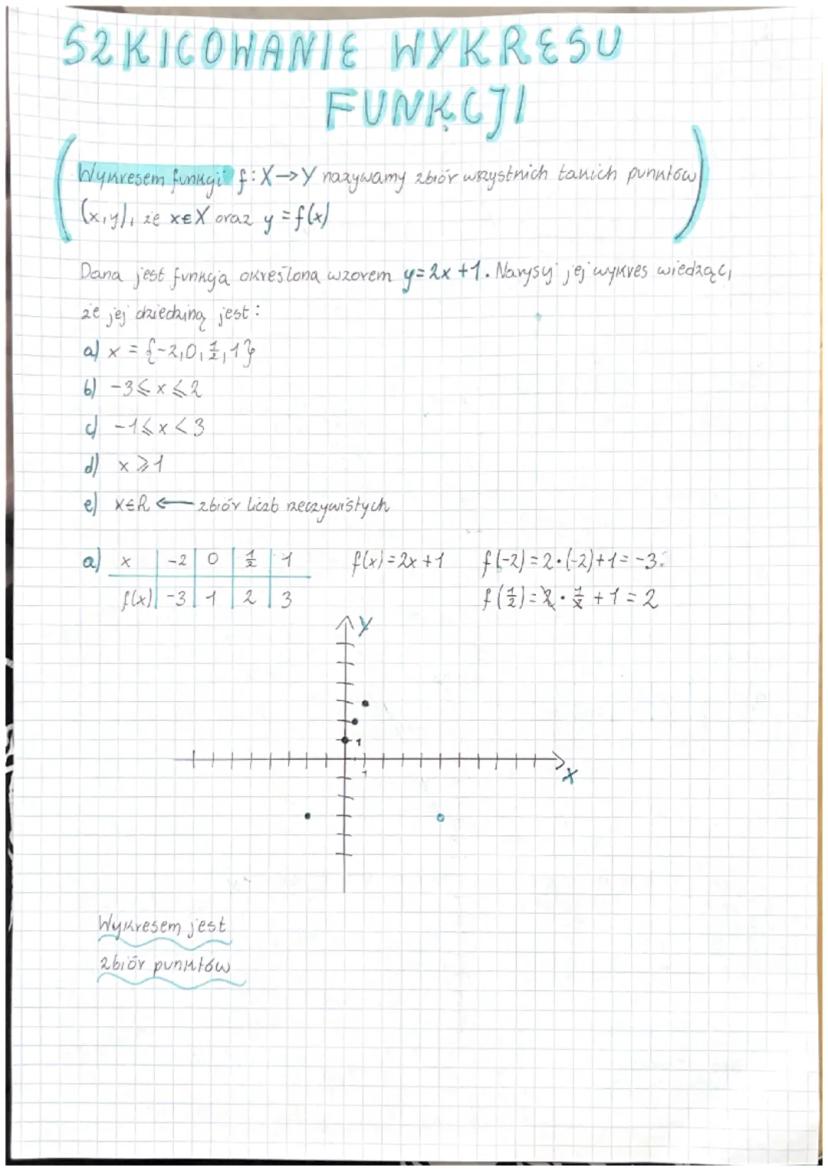 SZKICOWANIE WYKRESU
FUNKCJI
Wykresem funkcji f: X→Y nazywamy zbiór wszystkich takich punktów
(x,y), że x∈X oraz y = f(x)
Dana jest funkcja określona wzorem y=2x+1. Narysuj jej wykres wiedząc,
że jej dziedziną jest:
a) x = {-2,0,½,1}
b) -3⩽x⩽2
c) -1⩽x<3
d) x⩾1
e) x∈R ← zbiór liczb rzeczywistych
a) x | -2 | 0 | ½ | 1 f(x)=2x+1 f(-2)=2·(-2)+1=-3
f(x) | -3 | 1 | 2 | 3 f(½)=2·½+1=2
Y
1
1
X
Wykresem jest
zbiór punktów